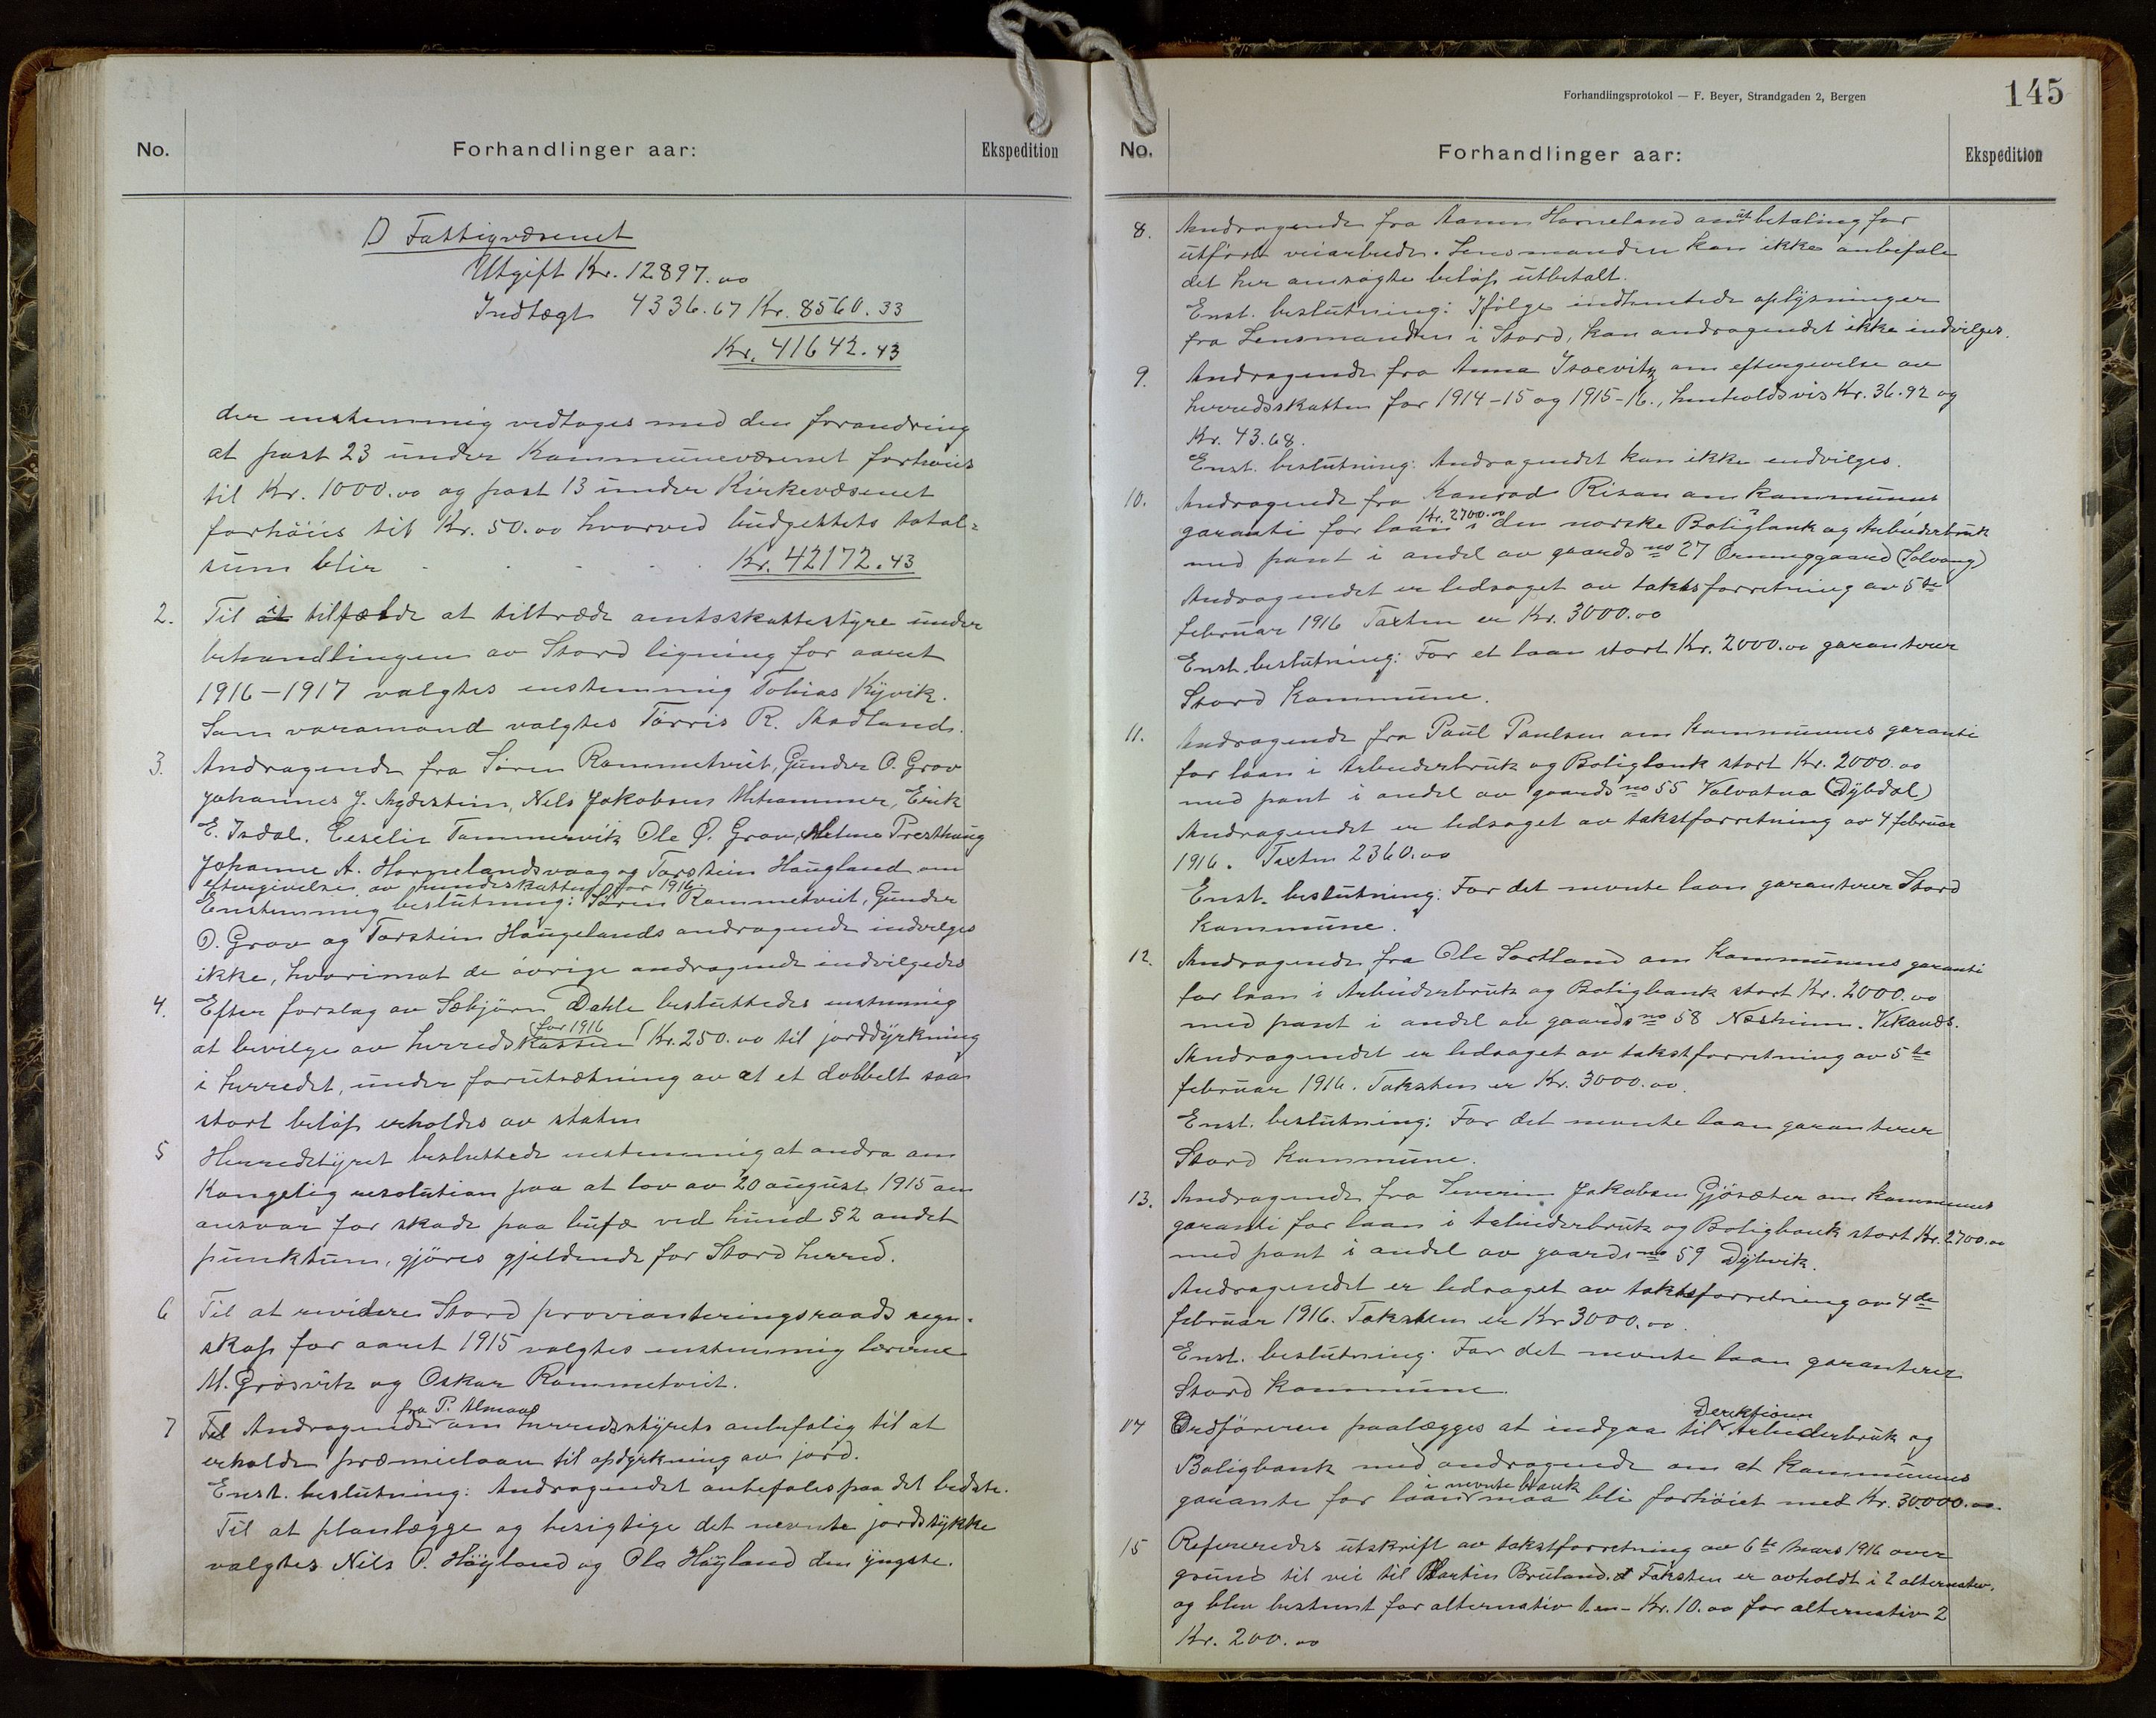 No.
Forhandlinger aar:
Ekspedition
D Fattigvæsenet
Utgift Kr. 12897.00
Indtægt 4336.67 Kr. 8560.33
Kr. 41642.43
der enstemmig vedtoges med den forandring
at post 23 under Kommunevæsenet forhöies
til Kr. 1000.00 og post 13 under Kirkevæsenet
forhöies til Kr. 50.00 hvorved budgettets total=
sum blir . . . . Kr. 42172.43
2. Til at tilfælde at tiltræde amtsskattestyre under
behandlingen av Stord ligning for aaret
1916-1917 valgtes enstemmig Tobias Kyvik.
Som varamand valgtes Törris R. Adland.
3. Andragende fra Sören Rommetveit, Gunder O. Grov
Johannes J. Nils Jakobsen Erik
E. Isdal. Tommervik Ole Ö. Grov, Presthaug
Johanne A. Hornelandsvaag og Torstein Haugland om
eftergivelse av hundeskatten for 1916.
Enstemmig beslutning: Sören Rommetveit, Gunder
O. Grov og Torstein Haugelands andragende indvilges
ikke, hvorimot de övrige andragende indvilgedes
4. Efter forslag av Sæbjörn Dahle besluttedes enstemmig
for 1916
at bevilge av herredskassen Kr. 250.00 til jorddyrkning
i herredet, under forutsætning av at et dobbelt saa
stort belöp erholdes av staten
5 Herredstyret besluttede enstemmig at andra om
Kongelig resolution paa at lov av 20 august 1915 om
ansvar for skade paa bufæ ved hund § 2 andet
punktum, gjöres gjeldende for Stord herred.
6 Til at revidere Stord provianteringsraads regn-
skap for aaret 1915 valgtes enstemmig lærerne
M. Grosvik og Oskar Rommetveit.
fra P. Almaas
7 Til Andragende om herredsstyrets anbefalig til at
erholde præmielaan til opdyrkning av jord.
Enst. beslutning: Andragendet anbefales paa det bedste.
Til at planlægge og besigtige det nevnte jordstykke
valgtes Nils P. Höyland og Ola Höyland den yngste.
Forhandlingsprotokol — F. Beyer, Strandgaden 2, Bergen
145
No.
Forhandlinger aar:
Ekspedition
8. Andragende fra Horneland om utbetaling for
utfört veiarbeide. Lensmanden kan ikke anbefale
det her ansögte belöp utbetalt.
Enst. beslutning: Ifölge indhentede oplysninger
fra Lensmanden i Stord, kan andragendet ikke indvilges.
9. Andragende fra Anna Isaevitz om eftergivelse av
herredsskatten for 1914-15 og 1915-16., henholdsvis Kr. 36.92 og
Kr. 43.68.
Enst. beslutning: Andragendet kan ikke indvilges.
10. Andragende fra Konrad Risan om kommunens
Kr. 2700.00
garanti for laan i den norske Boligbank og Arbeiderbruk
med pant i andel av gaards no 27 Orninggaard (Solvang)
Andragendet er ledsaget av takstforretning av 5te
februar 1916 Taxten er Kr. 3000.00
Enst. beslutning: For et laan stort Kr. 2000.00 garanterer
Stord Kommune.
11. Andragende fra Paul Paulsen om Kommunens garanti
for laan i Arbeiderbruk og Boligbank stort Kr. 2000.00
med pant i andel av gaards no 55 Valvatna (Dybdal)
Andragendet er ledsaget av takstforretning av 4 februar
1916. Taxten 2360.00
Enst. beslutning: For det nevnte laan garanterer Stord
Kommune.
12. Andragende fra Ole Sortland om Kommunens garanti
for laan i Arbeiderbruk og Boligbank stort Kr. 2000.00
med pant i andel av gaards no 58 Næsheim. Vikanes.
Andragendet er ledsaget av takstforretning av 5te
februar 1916. Taksten er Kr. 3000.00.
Enst. beslutning: For det nevnte laan garanterer
Stord kommune.
13. Andragende fra Severin Jakobsen Gjösæter om kommunens
garanti for laan i Arbeiderbruk og Boligbank stort Kr. 2700.00
med pant i andel av gaards no 59 Dybvik.
Andragendet er ledsaget av takstforretning av 4de
februar 1916. Taksten er Kr 3000.00.
Enst. beslutning: For det nevnte laan garanterer
Stord kommune.
Derektionen
14 Ordföreren paalægges at indgaa til Arbeiderbruk og
Boligbank med andragende om at Kommunens
i nevnte bank
garante for laan maa bli forhöiet med Kr. 30000.00.
15 Refereredes utskrift av takstforretning av 6te Mars 1916 over
grund til vei til Martin Bruland. Taksten er avholdt i 2 alternativ.
og blev bestemt for alternativ 1 en - Kr. 10.00 for alternativ 2
Kr. 200.00